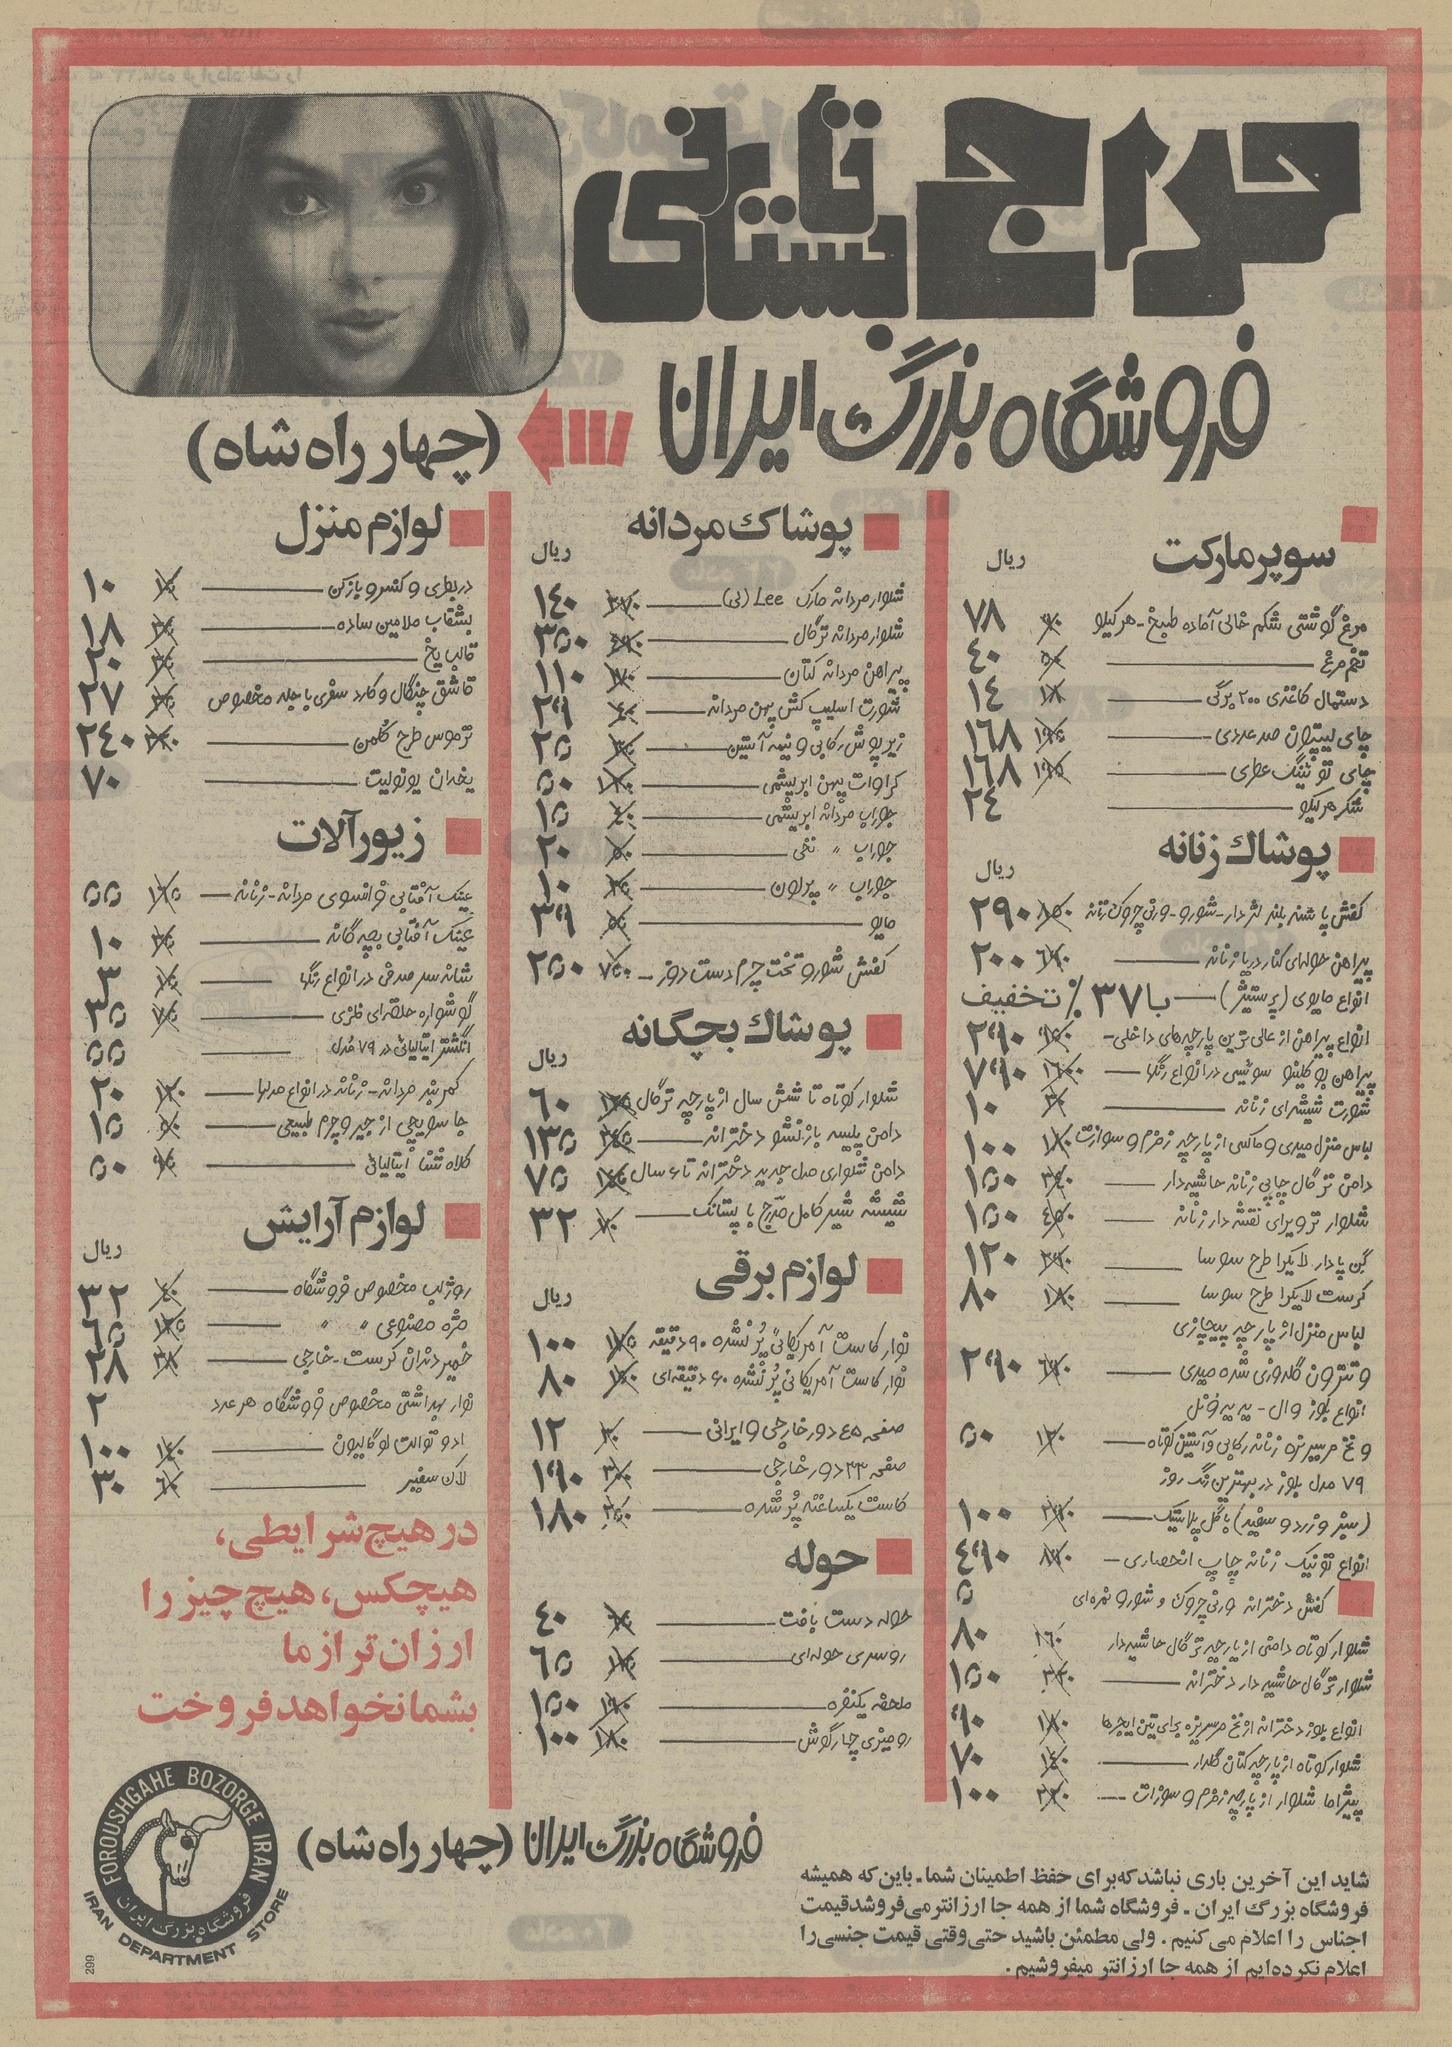 حراج تابستانی
فروشگاه بزرگ ایران
(چهار راه شاه)
سوپر مارکت
ریال
مرغ گوشتی شکم خالی آماده طبخ - هر کیلو ۹۰ ۷۸
تخم مرغ ۵۰ ۴۰
دستمال کاغذی ۲۰۰ برگی ۱۸ ۱۴
چای لیپتون صد عددی ۱۹۵ ۱۶۸
چای توئینگ عطری ۱۹۵ ۱۶۸
شکر هر کیلو ۲۴
پوشاك زنانه
ریال
کفش پاشنه بلند لژدار - شورو - ورنی چروک زنانه ۲۹۰
پیراهن حوله‌ای کنار دریا زنانه ۲۰۰
انواع مایوی (پرستیژ) با ۳۷٪ تخفیف
انواع پیراهن از عالی ترین پارچه‌های داخلی - ۲۹۰
پیراهن بوکلینو سوئیسی در انواع رنگها ۷۹۰
شورت شیشه‌ای زنانه ۱۰
لباس منزل میدی و ماکسی از پارچه زمزم و سوزت ۱۰۰
دامن ترگال چاپی زنانه حاشیه‌دار ۱۵۰
شلوار ترویرای نقشه دار زنانه ۴۵۰ ۱۵۰
گن پادار لایکرا طرح سوسا ۱۲۰
کرست لایکرا طرح سوسا ۱۸۰ ۸۰
لباس منزل از پارچه پیچازی
و تترون گلدوزی شده میدی ۲۹۰
انواع بلوز وال - په په ونل
و نخ مرسریزه زنانه رکابی و آستین کوتاه ۱۳۰ ۵۰
۷۹ مدل بلوز در بهترین رنگ روز
(سبز و زرد و سفید) با گل پلاستیک ۱۰۰
انواع تونیک زنانه چاپ انحصاری - ۴۹۰
کفش دخترانه ورنی چروک و شورو نمره‌ای ۵
شلوار کوتاه دامنی از پارچه ترگال حاشیه‌دار ۱۶۰ ۸۰
شلوار ترگال حاشیه دار دخترانه ۱۵۰
انواع بلوز دخترانه از نخ مرسریزه برای تین ایجرها ۱۸۰ ۹۰
شلوار کوتاه از پارچه کتان گلدار ۱۴۰ ۷۰
پیژاما شلوار از پارچه زمزم و سوزات ۱۰۰
پوشاك مردانه
ریال
شلوار مردانه مارک Lee (لی) ۳۷۰ ۱۴۰
شلوار مردانه ترگال ۳۵۰
پیراهن مردانه کتان ۱۷۰ ۱۱۰
شورت اسلیپ کش پهن مردانه ۴۰ ۲۹
زیر پوش رکابی و نیمه آستین ۳۵ ۲۵
کراوات پهن ابریشمی ۵۰
جوراب مردانه ابریشمی ۴۰ ۱۵
جوراب " نخی ۵۰ ۲۰
جوراب " پرلون ۱۰
مایو ۳۹
کفش شورو تخت چرم دست دوز ۷۵۰ ۲۵۰
پوشاك بچگانه
ریال
شلوار کوتاه تا شش سال از پارچه ترگال ۶۰
دامن پلیسه بازنشو دخترانه ۱۳۵
دامن شلواری مدل جدید دخترانه تا ۶ سال ۷۵
شیشه شیر کامل مدرج با پستانک ۷۰ ۳۲
لوازم برقی
ریال
نوار کاست آمریکائی پر نشده ۹۰ دقیقه ۱۰۰
نوار کاست آمریکائی پر نشده ۶۰ دقیقه‌ای ۸۰
صفحه ۴۵ دور خارجی و ایرانی ۱۲
صفحه ۳۳ دور خارجی ۳۰۰ ۱۹۰
کاست یکساعته پر شده ۱۸۰
حوله
حوله دست بافت ۴۰
روسری حوله‌ای ۶۵
ملحفه یکنفره ۱۹۰ ۱۵۰
رومیزی چهارگوش ۱۸۰ ۱۰۰
لوازم منزل
در بطری و کنسرو بازکن ۱۰
بشقاب ملامین ساده ۱۸
قالب یخ ۲۰
قاشق چنگال و کارد سفری با جلد مخصوص ۲۷
ترموس طرح کلمن ۲۴۰
یخدان یونولیت ۷۰
زیورآلات
عینک آفتابی فرانسوی مردانه - زنانه ۱۶۵ ۵۵
عینک آفتابی بچه گانه ۱۰
شانه سر صدفی در انواع رنگها ۳
گوشواره حلقه‌ای فلزی ۳۵
انگشتر ایتالیائی در ۷۹ مدل ۵۵
کمربند مردانه - زنانه در انواع مدلها ۱۲۰ ۲۰
جا سویچی از جیر و چرم طبیعی ۱۵
کلاه شنا ایتالیائی ۵۰
لوازم آرایش
ریال
روژلب مخصوص فروشگاه ۴۰ ۳۲
مژه مصنوعی " " ۶۵
خمیر دندان کرست - خارجی ۳۸ ۲۸
نوار بهداشتی مخصوص فروشگاه هر عدد ۲
ادو توالت لوگالیون ۱۴۰ ۱۰۰
لاک سفیر ۶۰ ۳۰
در هیچ شرایطی،
هیچکس، هیچ چیز را
ارزان تر از ما
بشما نخواهد فروخت
فروشگاه بزرگ ایران (چهار راه شاه)
FOROUSHGAHE BOZORGE IRAN
فروشگاه بزرگ ایران
IRAN DEPARTMENT STORE
299
شاید این آخرین باری نباشد که برای حفظ اطمینان شما - باین که همیشه
فروشگاه بزرگ ایران - فروشگاه شما از همه جا ارزانتر می‌فروشد قیمت
اجناس را اعلام می کنیم . ولی مطمئن باشید حتی وقتی قیمت جنسی را
اعلام نکرده‌ایم از همه جا ارزانتر میفروشیم .